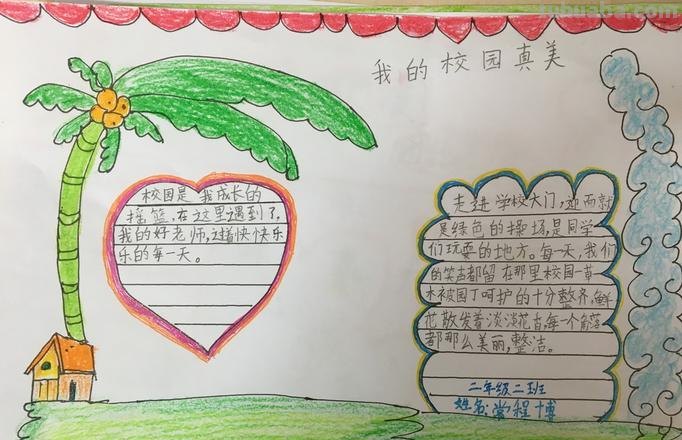 我的校园真美
校园是我成长的
摇篮，在这里遇到了，
我的好老师，过着快快乐
乐的每一天。
走进学校大门，迎面就
是绿色的操场，是同学
们玩耍的地方。每一天，我们
的笑声都留在那里校园一草
木被园丁呵护的十分整齐，鲜
花散发着淡淡花香，每一个角落
都那么美丽，整洁。
二年级二班
姓名：常程博